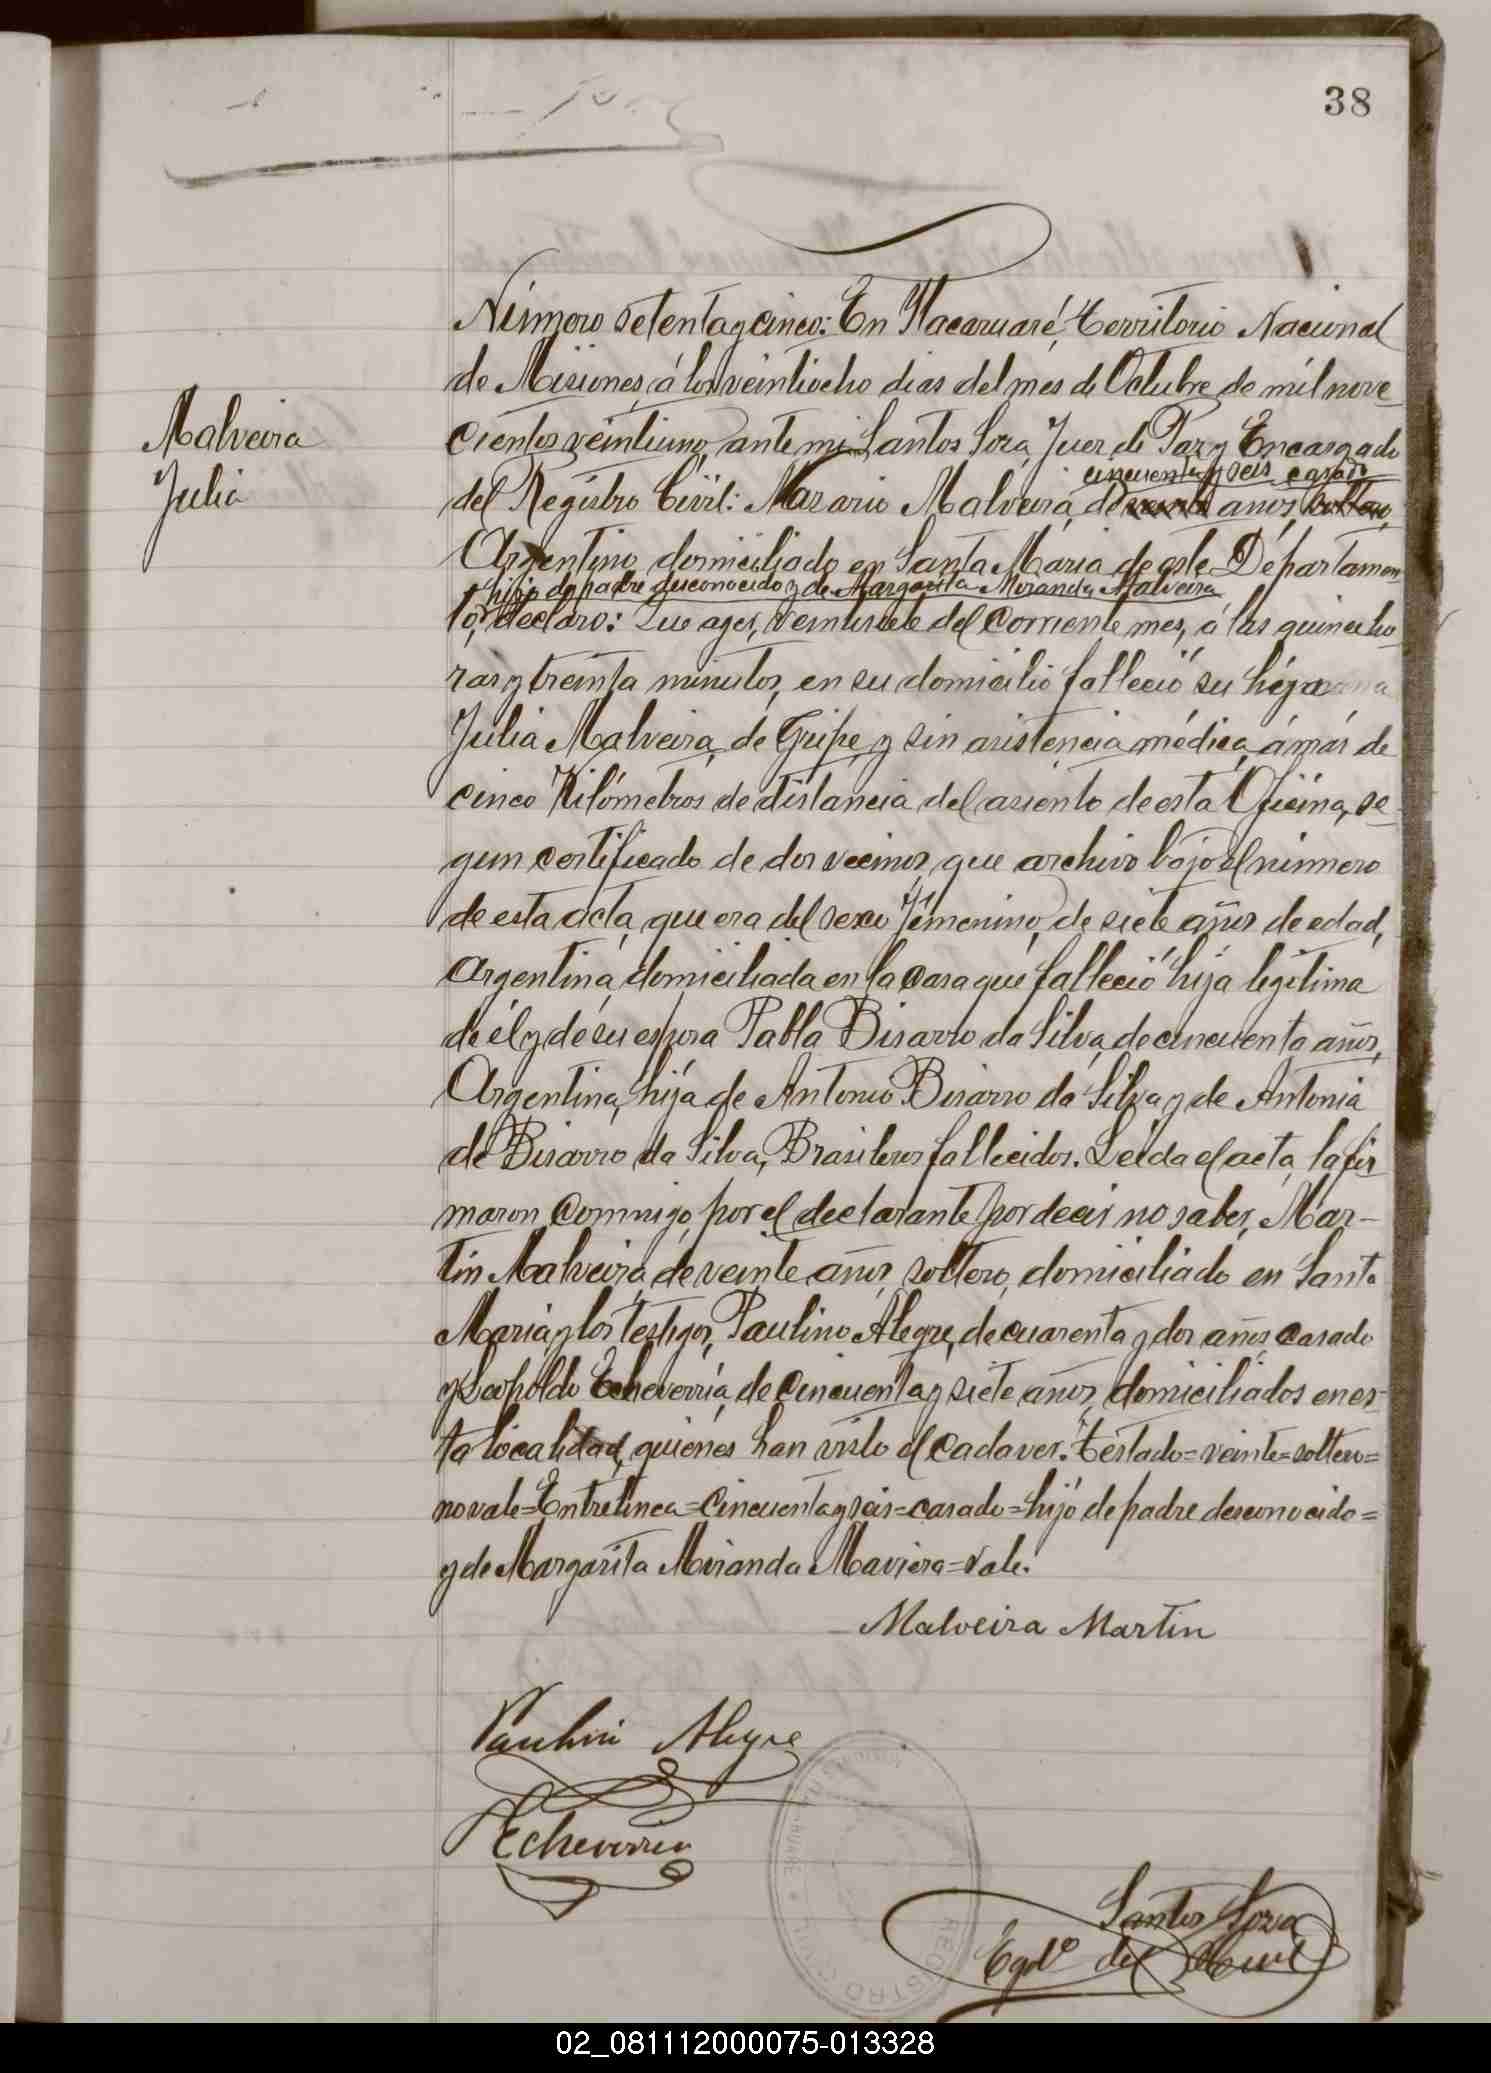 38
Malveira
Julia
Número setenta y cinco: En Itacaruaré, territorio Nacional
de Misiones, á los veintiocho dias del mes de Octubre de mil nove-
cientos veintiuno, ante mi Santos Soza, Juez de Paz y Encargado
cincuenta y seis casado
del Registro Civil: Nazario Malveira, de veinte años, soltero,
Argentino, domiciliado en Santa Maria de este Departamen-
hijo de padre desconocido y de Margarita Miranda Malveira
to, declaro: Que ayer, veintisiete del corriente mes, á las quince ho-
ras y treinta minutos, en su domicilio falleció su hija
Julia Malveira, de Gripe, y sin asistencia médica, á más de
cinco Kilómetros de distancia del asiento de esta Oficina, se-
gun certificado de dos vecinos, que archivo bajo el número
de esta acta, que era del sexo femenino, de siete años de edad,
Argentina, domiciliada en la casa que falleció hija legítima
de él y de su esposa Pabla Bisarro da Silva, de cincuenta años,
Argentina, hija de Antonio Bisarro da Silva y de Antonia
de Bisarro da Silva, Brasileros fallecidos. Leida el acta, la fir
maron conmigo, por el declarante por decir no saber, Mar-
tin Malveira, de veinte años, soltero, domiciliado en Santa
Maria y los testigos, Paulino Alegre, de cuarenta y dos años, casado
y Leopoldo Echeverría, de cincuenta y siete años, domiciliados en es-
ta localidad, quienes han visto el cadaver. testado=veinte=soltero=
no vale=Entrelinea=cincuenta y seis=casado=hijo de padre desconocido=
y de Margarita Miranda Maviera=Vale.
Malveira Martin
Paulino Alegre
Echeverria
REGISTRO CIVIL
Santos Soza
Egdo del R Civil
02_081112000075-013328